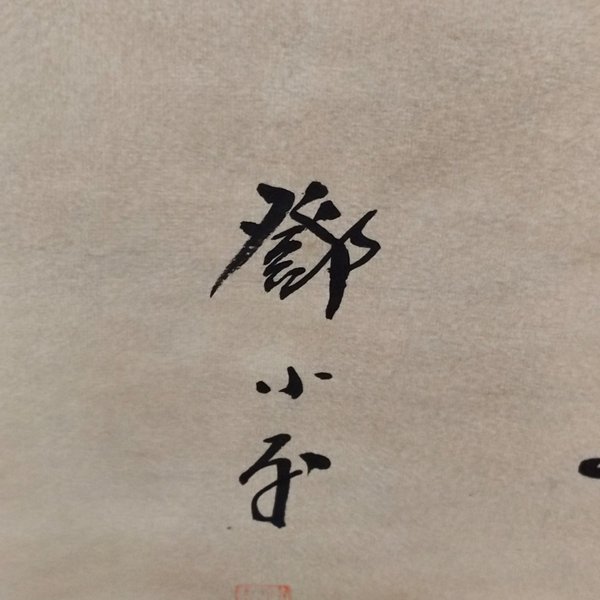 鄧小平